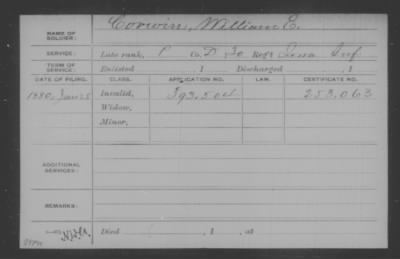 NAME OF SOLDIER: Corwin, William E.
SERVICE: Late rank, P Co. D, 30 Reg't Iowa Inf.
TERM OF SERVICE: Enlisted , 1 Discharged , 1
DATE OF FILING. CLASS. APPLICATION NO. LAW. CERTIFICATE NO.
1880, Invalid, 253.063
Widow,
Minor,
ADDITIONAL SERVICES:
REMARKS:
Died , 1 , at